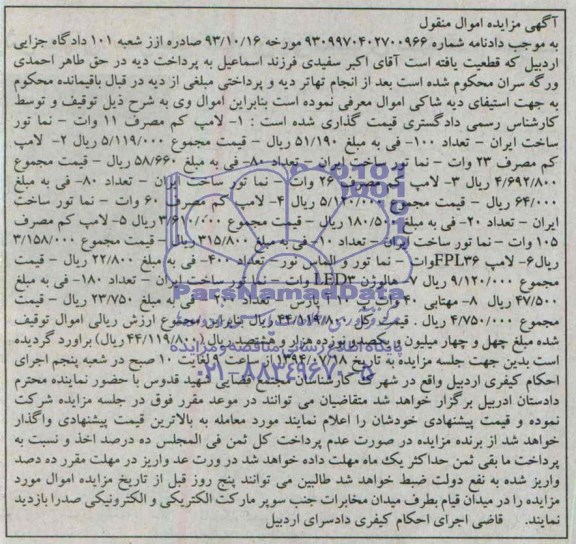 آگهی مزایده اموال منقول
به موجب دادنامه شماره ۹۳۰۹۹۷۰۴۰۲۷۰۰۹۶۶ مورخه ۹۳/۱۰/۱۶ صادره ازز شعبه ۱۰۱ دادگاه جزایی
اردبیل که قطعیت یافته است آقای اکبر سفیدی فرزند اسماعیل به پرداخت دیه در حق طاهر احمدی
ورگه سران محکوم شده است بعد از انجام تهاتر دیه و پرداختی مبلغی از دیه در قبال باقیمانده محکوم
به جهت استیفای دیه شاکی اموال معرفی نموده است بنابراین اموال وی به شرح ذیل توقیف و توسط
کارشناس رسمی دادگستری قیمت گذاری شده است : ۱- لامپ کم مصرف ۱۱ وات - نما نور
ساخت ایران - تعداد ۱۰۰- فی به مبلغ ۵۱/۱۹۰ ریال - قیمت مجموع ۵/۱۱۹/۰۰۰ ریال ۲- لامپ
کم مصرف ۲۳ وات - نما نور ساخت ایران - تعداد ۸۰- فی به مبلغ ۵۸/۶۶۰ ریال - قیمت مجموع
۴/۶۹۲/۸۰۰ ریال ۳- لامپ کم مصرف ۲۶ وات - نما نور ساخت ایران - تعداد ۸۰- فی به مبلغ
۶۴/۰۰۰ ریال - قیمت مجموع ۵/۱۲۰/۰۰۰ ریال ۴- لامپ کم مصرف ۶۰ وات - نما نور ساخت
ایران - تعداد ۲۰- فی به مبلغ ۱۸۰/۵۰۰ ریال - قیمت مجموع ۳/۶۱۰/۰۰۰ ریال ۵- لامپ کم مصرف
۱۰۵ وات - نما نور ساخت ایران - تعداد ۱۰- فی به مبلغ ۳۱۵/۸۰۰ ریال - قیمت مجموع ۳/۱۵۸/۰۰۰
ریال ۶- لامپ FPL۳۶وات - نما نور و الماس نور - تعداد ۴۰۰- فی به مبلغ ۲۲/۸۰۰ ریال - قیمت
مجموع ۹/۱۲۰/۰۰۰ ریال ۷- هالوژن LED۳ وات - نما نور ساخت ایران - تعداد ۱۸۰- فی به مبلغ
۴۷/۵۰۰ ریال ۸- مهتابی ۴۰ وات پارس - تعداد ۲۰۰- فی به مبلغ ۲۳/۷۵۰ ریال - قیمت
مجموع ۴/۷۵۰/۰۰۰ ریال . قیمت کل ۴۴/۱۱۹/۸۰۰ ریال بنابراین مجموع ارزش ریالی اموال توقیف
شده مبلغ چهل و چهار میلیون و یکصد و نوزده هزار و هشتصد ریال (۴۴/۱۱۹/۸۰۰ ریال) براورد گردیده
است بدین جهت جلسه مزایده به تاریخ ۱۳۹۴/۰۷/۱۸ از ساعت ۹ لغایت ۱۰ صبح در شعبه پنجم اجرای
احکام کیفری اردبیل واقع در شهرک کارشناسان مجتمع قضایی شهید قدوسی با حضور نماینده محترم
دادستان ادربیل برگزار خواهد شد متقاضیان می توانند در موعد مقرر فوق در جلسه مزایده شرکت
نموده و قیمت پیشنهادی خودشان را اعلام نمایند مورد معامله به بالاترین قیمت پیشنهادی واگذار
خواهد شد از برنده مزایده در صورت عدم پرداخت کل ثمن فی المجلس ده درصد اخذ و نسبت به
پرداخت ما بقی ثمن حداکثر یک ماه مهلت داده خواهد شد در ورت عد واریز در مهلت مقرر ده دصد
واریز شده به نفع دولت ضبط خواهد شد طالبین می توانند پنج روز قبل از تاریخ مزایده اموال مورد
مزایده را در میدان قیام بطرف میدان مخابرات جنب سوپر مارکت الکتریکی و الکترونیکی صدرا بازدید
نمایند. قاضی اجرای احکام کیفری دادسرای اردبیل
ParsNamadData
۰۲۱-۸۸۳۴۹۶۷۰-۵